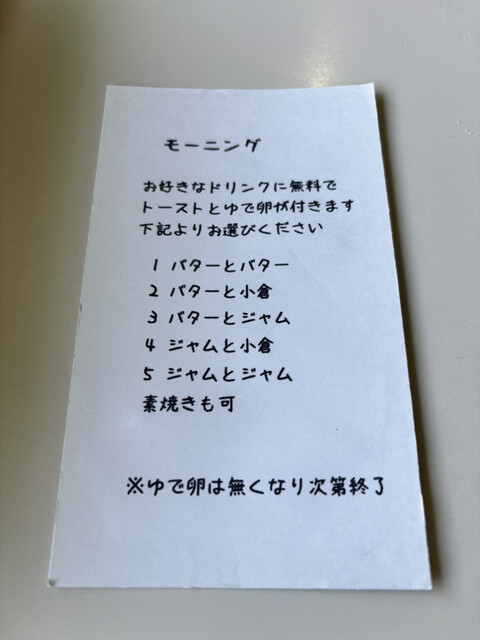 モーニング
お好きなドリンクに無料で
トーストとゆで卵が付きます
下記よりお選びください
1 バターとバター
2 バターと小倉
3 バターとジャム
4 ジャムと小倉
5 ジャムとジャム
素焼きも可
※ゆで卵は無くなり次第終了